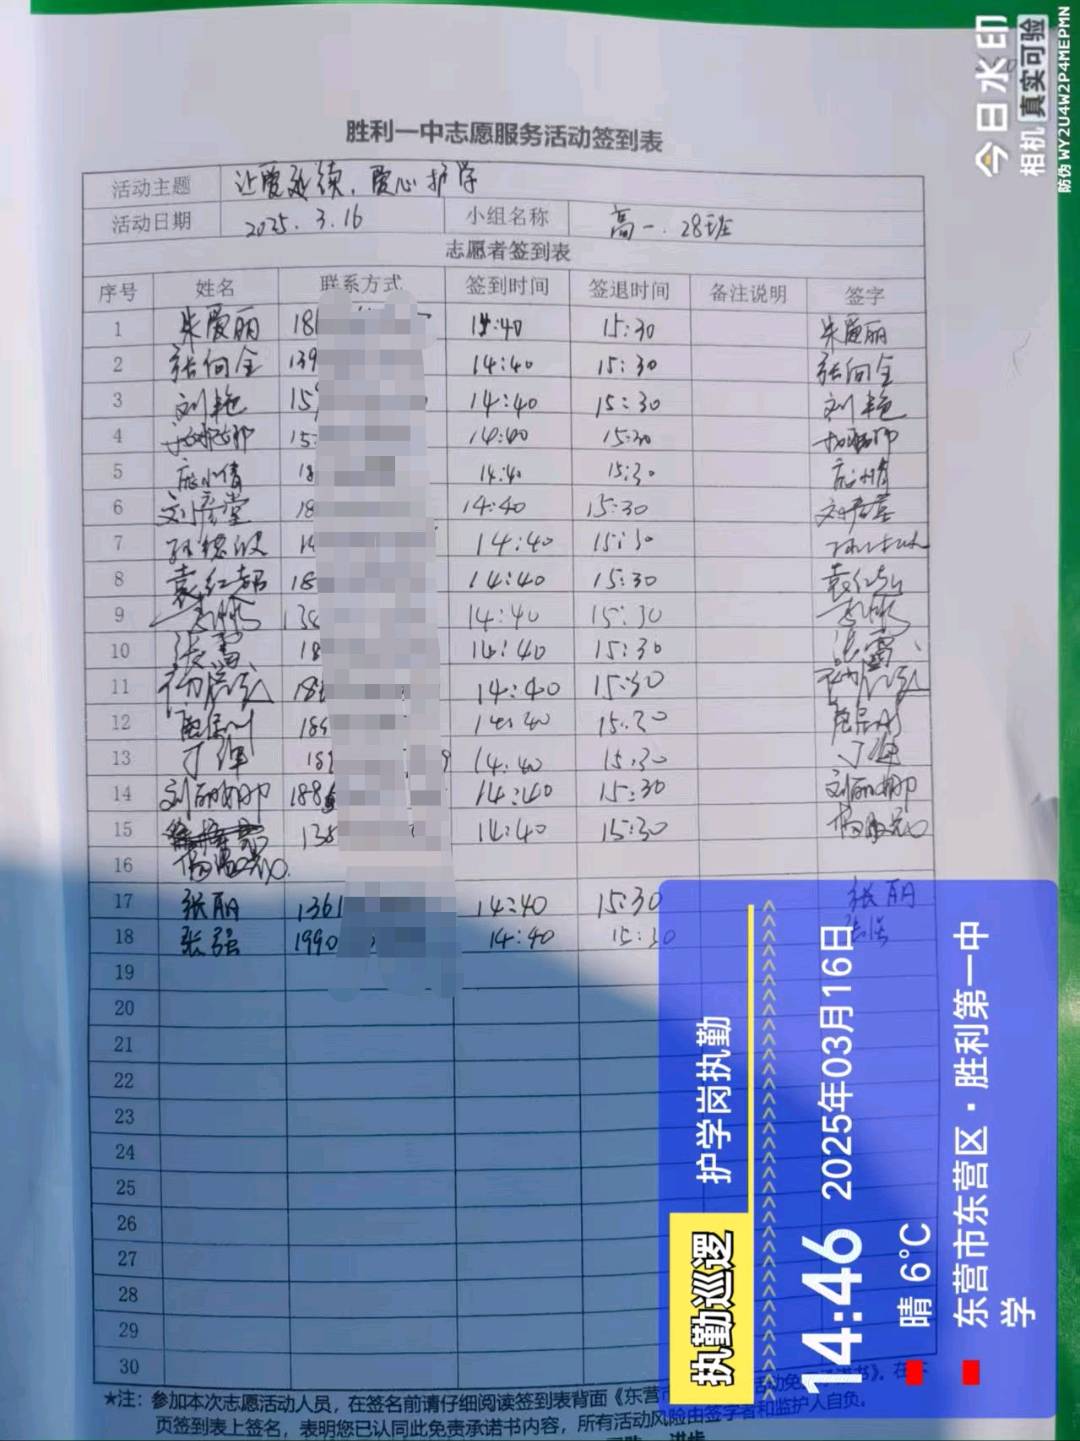 胜利一中志愿服务活动签到表
活动主题 让爱延续，爱心护学
活动日期 2025.3.16 小组名称 高一.28班
志愿者签到表
序号 姓名 联系方式 签到时间 签退时间 备注说明 签字
1 朱爱丽 18 14:40 15:30 朱爱丽
2 张向全 139 14:40 15:30 张向全
3 刘艳 15 14:40 15:30 刘艳
4 15 14:40 15:30
5 18 14:40 15:30
6 刘彦堂 18 14:40 15:30 刘彦堂
7 14:40 15:30
8 袁红 18 14:40 15:30 袁红
9 138 14:40 15:30
10 张雷 18 14:40 15:30 张雷
11 18 14:40 15:30
12 189 14:40 15:30
13 丁 18 9 14:40 15:30 丁
14 刘丽娜 188 14:40 15:30 刘丽娜
15 138 14:40 15:30 杨
16 杨
17 张丽 1361 14:40 15:30 张丽
18 张强 1990 14:40 15:30 张强
19
20
21
22
23
24
25
26
27
28
29
30
*注：参加本次志愿活动人员，在签名前请仔细阅读签到表背面《东营市
页签到表上签名，表明您已认同此免责承诺书内容，所有活动风险由签字者和监护人自负。
执勤巡逻 护学岗执勤
14:46 2025年03月16日
晴 6°C
东营市东营区·胜利第一中
学
今日水印
相机 真实可验
防伪 WY2U4W2P4MEPMN